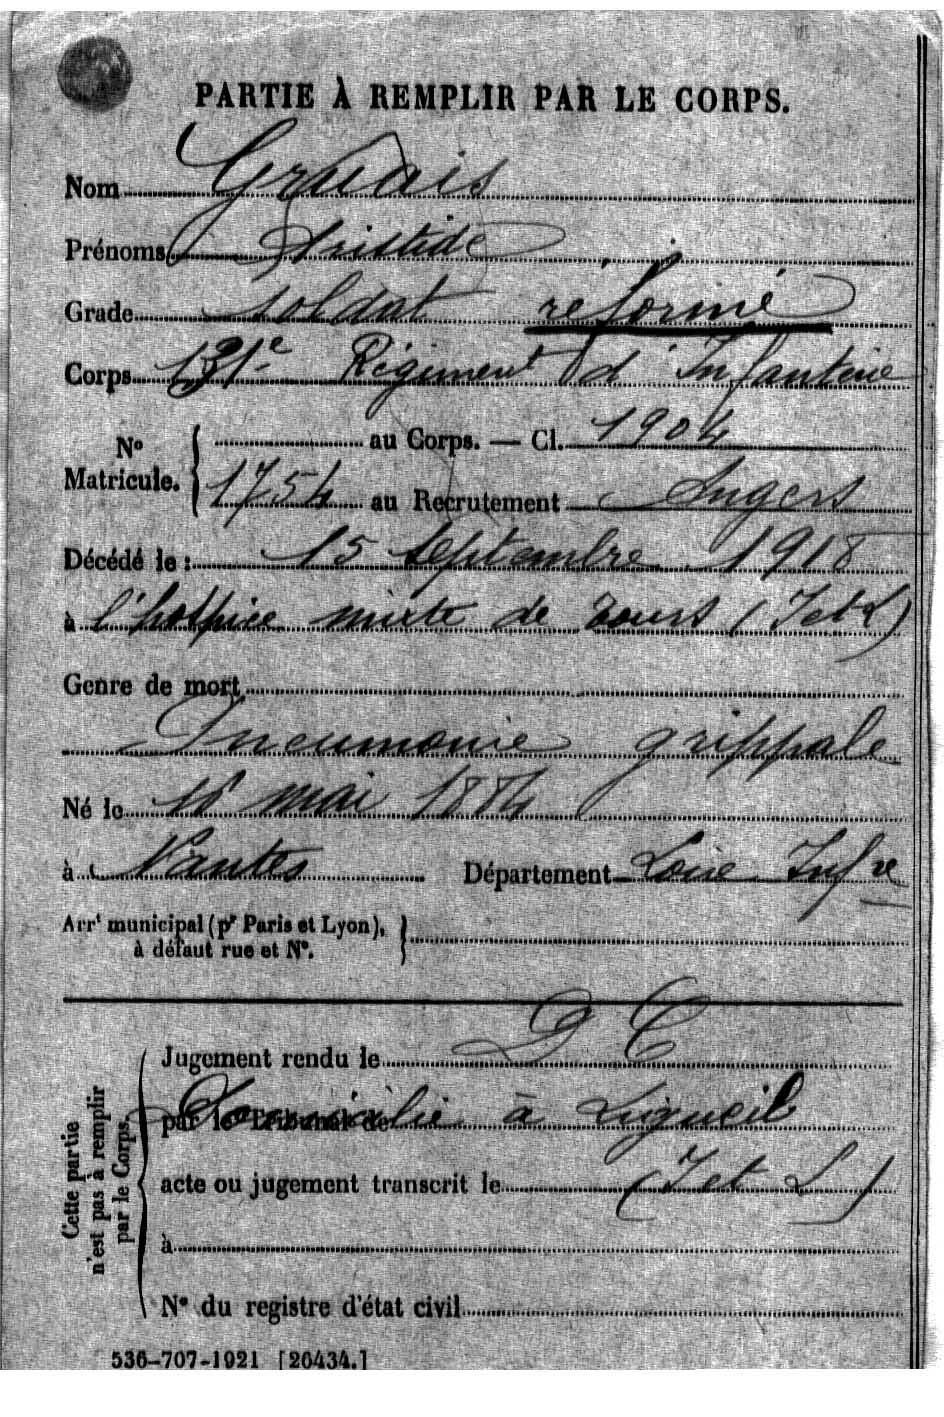 PARTIE À REMPLIR PAR LE CORPS.
Nom Gruais
Prénoms Aristide
Grade soldat réformé
Corps 131e Régiment d'Infanterie
No Matricule. { au Corps. — Cl. 1904
1754 au Recrutement Angers
Décédé le : 15 Septembre 1918
à l'hospice mixte de Tours (I et L)
Genre de mort
Pneumonie grippale
Né le 18 mai 1884
à Nantes Département Loire Infre
Arrt municipal (pr Paris et Lyon), }
à défaut rue et No.
Cette partie n'est pas à remplir par le Corps.
Jugement rendu le D C
par le Tribunal de Domicilié à Ligueil
acte ou jugement transcrit le (I et L)
à
No du registre d'état civil
536-707-1921 [26434.]